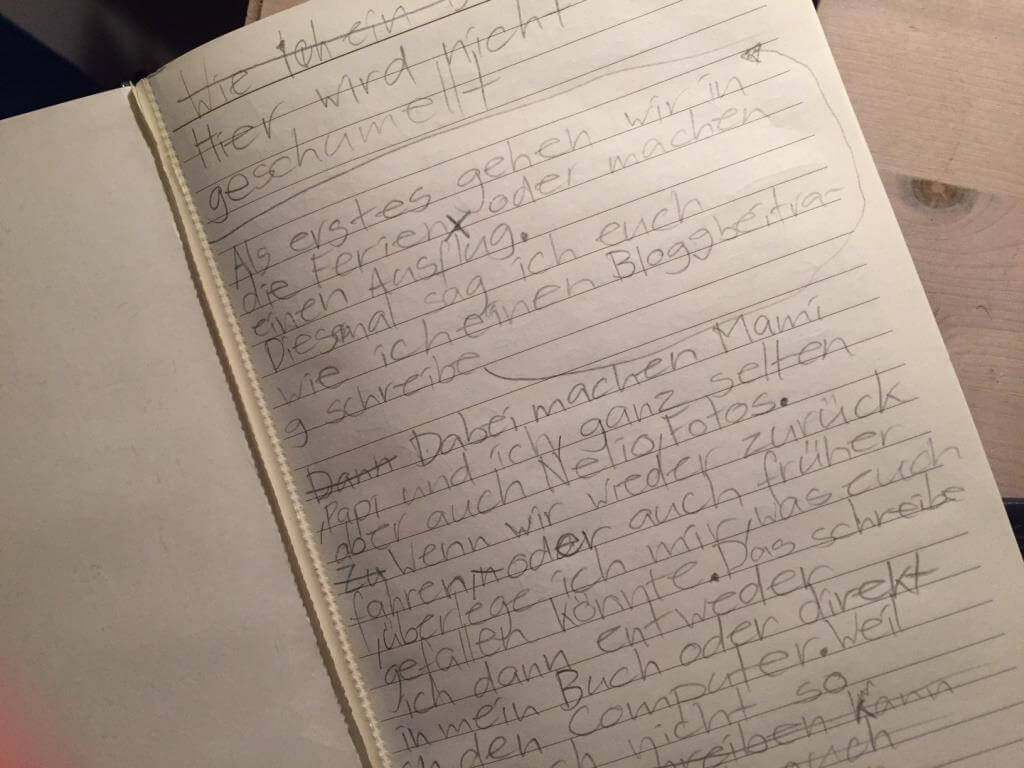 Wie ich ein
Hier wird nicht
geschumellt
Als erstes gehen wir in
die Ferien oder machen
einen Ausflug.
Diesmal sag ich euch
wie ich einen Bloggbeitra-
g schreibe
Dann Dabei machen Mami
Papi und ich, ganz selten
aber auch Nelio, Fotos.
Zu Wenn wir wieder zurück
fahren oder auch früher
überlege ich mir, was euch
gefallen könnte. Das schreibe
ich dann entweder
in mein Buch oder direkt
an den Computer. Weil
ich nicht so
schreiben kann
auch